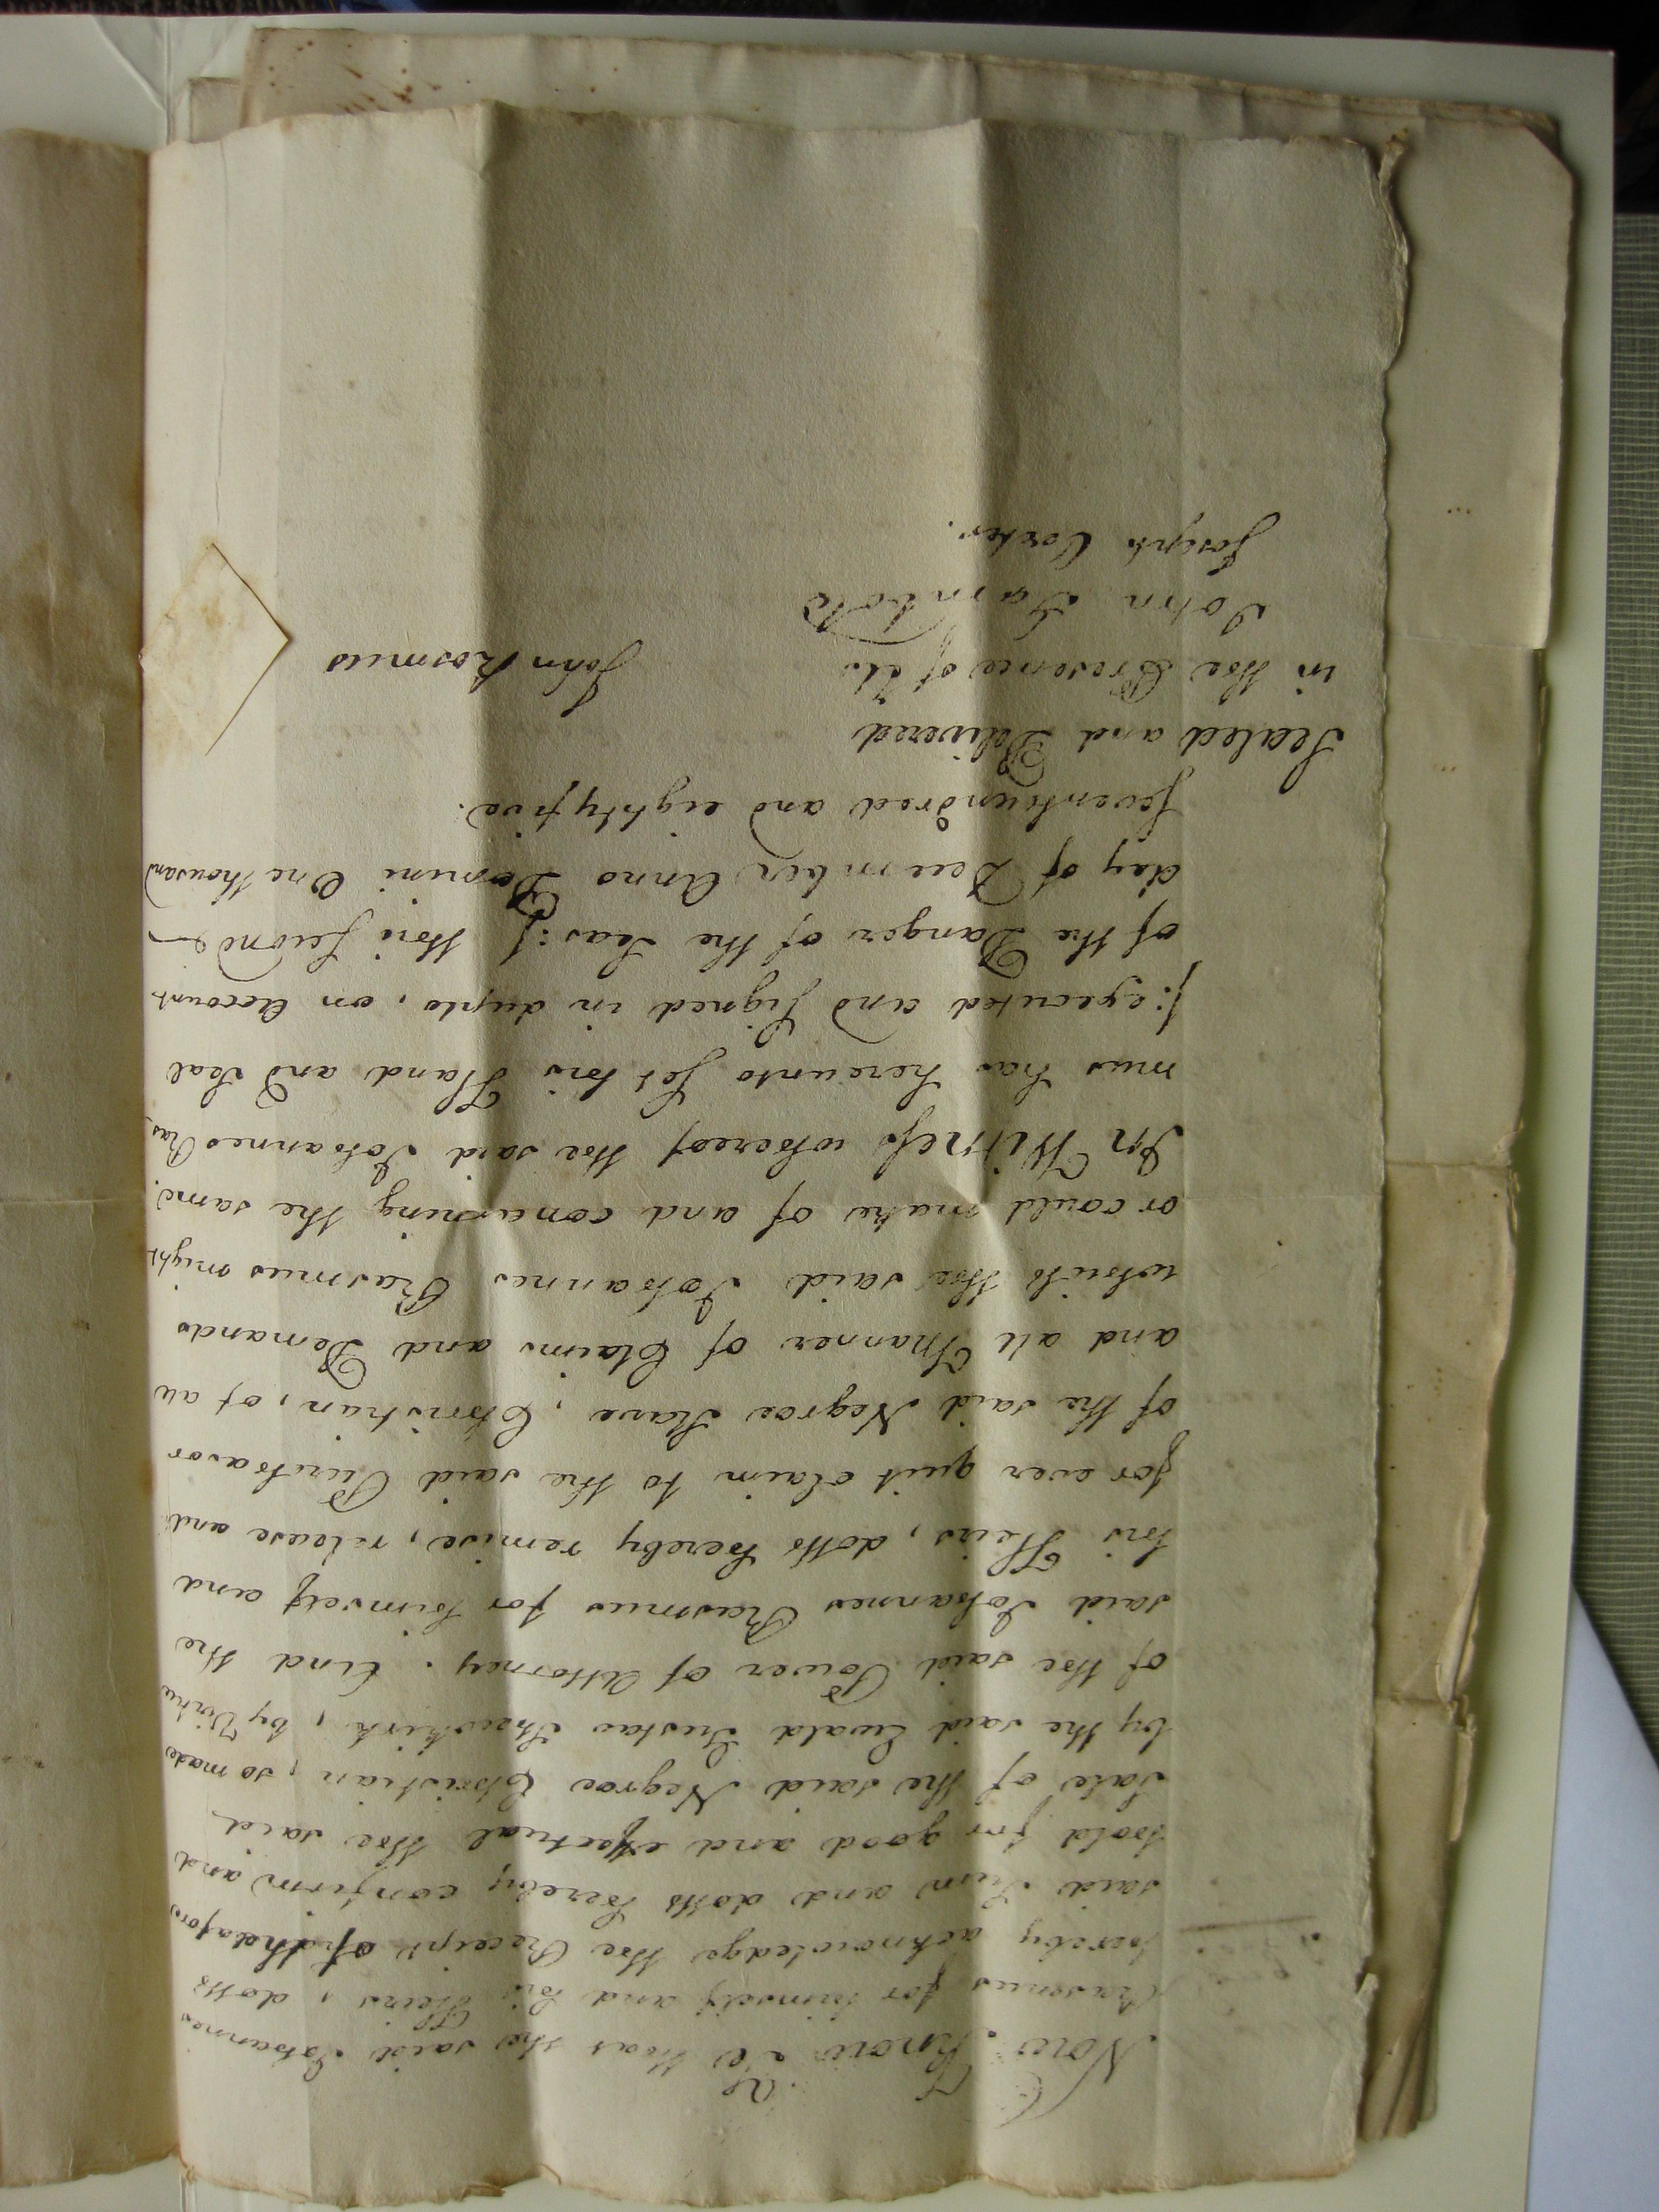 Now Know Ye that the said Johannes
Rasmus for himself and his Heirs, doth
hereby acknowledge the Receipt of the afore
said Sum and doth hereby confirm and
hold for good and effectual the said
Sale of the said Negroe Christian, so made
by the said Ewald Gustav Shewkirk, by Virtue
of the said Power of Attorney. And the
said Johannes Rasmus for himself and
his Heirs, doth hereby remise, release and
for ever quit claim to the said Purchasor
of the said Negroe Slave, Christian, of all
and all Manner of Claims and Demands
which the said Johannes Rasmus might
or could make of and concerning the same.
In Witness whereof the said Johannes Ras
mus has hereunto set his Hand and Seal
/: executed and signed in duplo, on Account
of the Danger of the Seas :/ this second
day of December Anno Domini One thousand
seven hundred and eighty five.
Sealed and Delivered
in the Presence of Us
John Rasmus
John Gambold
Joseph